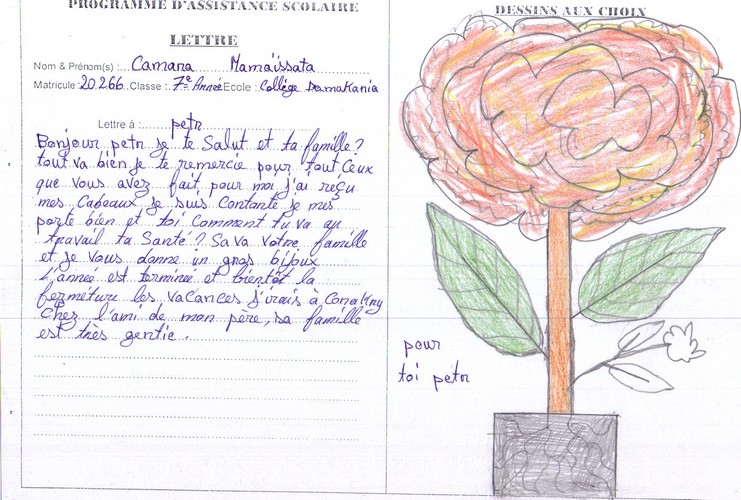 PROGRAMME D'ASSISTANCE SCOLAIRE
LETTRE
Nom & Prénom(s) : Camara Mamaïssata
Matricule : 20266 Classe : 7e Année Ecole : Collège Damakania
Lettre à : petr
Bonjour petr je te Salut et ta famille ?
tout va bien je te remercie pour tout Ceux
que vous avez fait pour moi j'ai reçu
mes Cadeaux je suis Contante je mes
porte bien et toi Comment tu va au
travail ta Santé ? Sa va votre famille
et je vous donne un gros bijoux
L'année est terminée et bientôt la
fermeture les vacances j'irais à Conakry
Chez l'ami de mon père, sa famille
est très gentie.
DESSINS AUX CHOIX
pour
toi petr